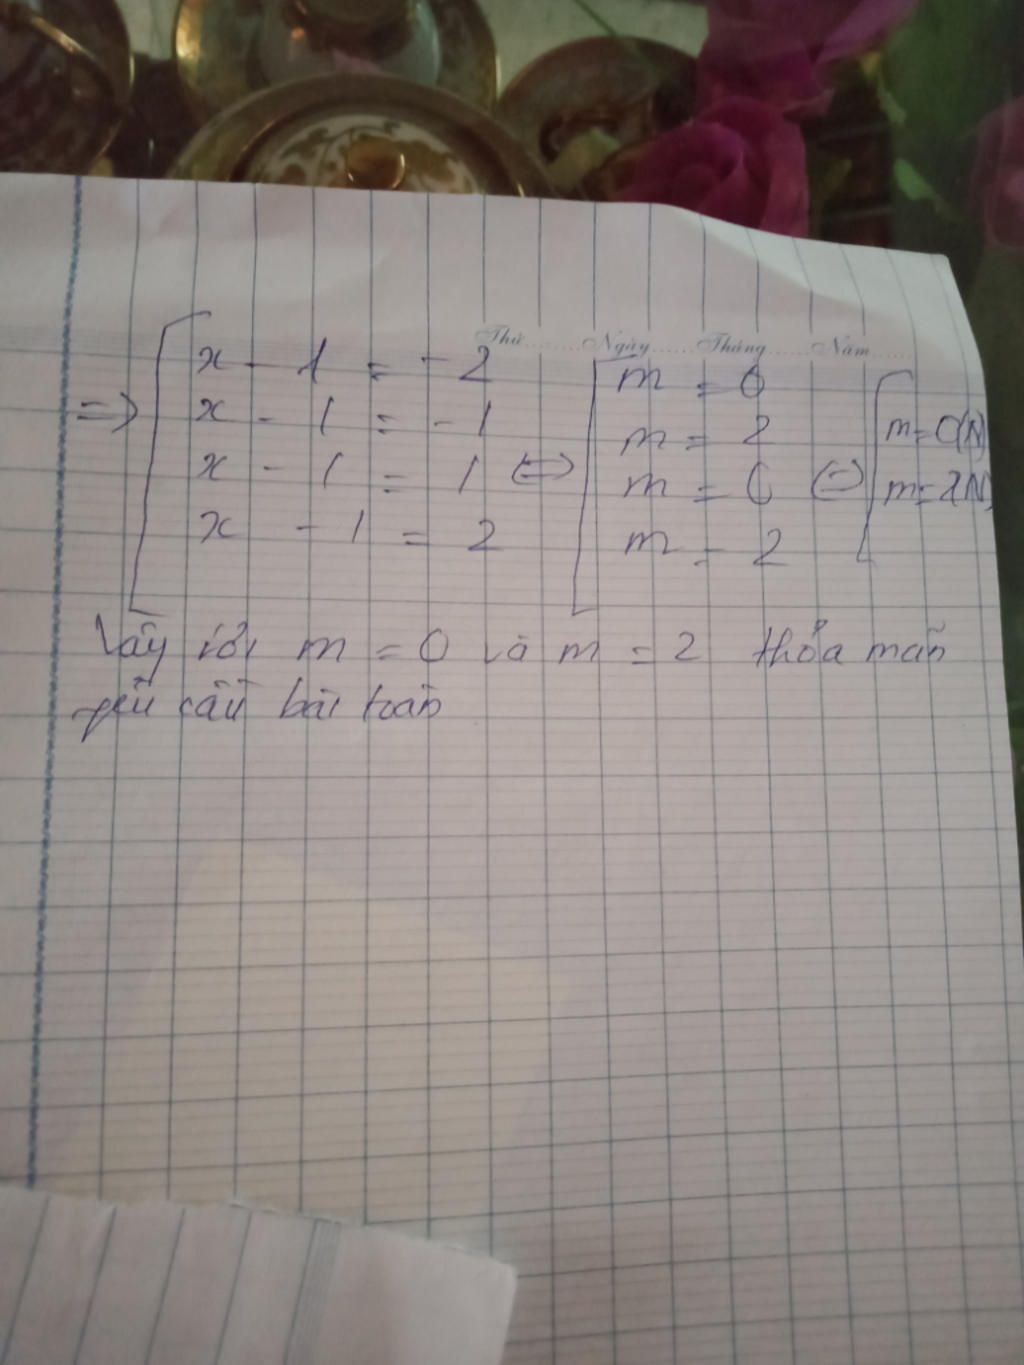 Thứ........Ngày......Tháng......Năm......
=> [ x - 1 = -2
x - 1 = -1
x - 1 = 1
x - 1 = 2
<=> [ m = 0
m = 2
m = 0
m = 2
<=> [ m = 0(N)
m = 2(N)
Vậy với m = 0 và m = 2 thỏa mãn
yêu cầu bài toán